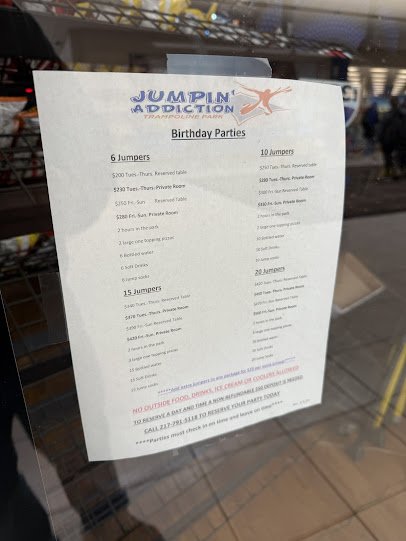 JUMPIN'
ADDICTION
TRAMPOLINE PARK
Birthday Parties
6 Jumpers
$200 Tues.-Thurs. Reserved table
$230 Tues.-Thurs. Private Room
$250 Fri.-Sun Reserved Table
$280 Fri.-Sun. Private Room
2 hours in the park
2 large one topping pizzas
6 Bottled water
6 Soft Drinks
6 Jump socks
10 Jumpers
Tues.-Thurs. Reserved table
Tues.-Thurs. Private Room
Fri.-Sun Reserved Table
Fri.-Sun. Private Room
2 hours in the park
2 large one topping pizzas
10 Bottled water
10 Soft Drinks
10 Jump socks
15 Jumpers
Tues.-Thurs. Reserved Table
Tues.-Thurs. Private Room
Fri.-Sun Reserved Table
Fri.-Sun. Private Room
2 hours in the park
3 large one topping pizzas
15 Bottled water
15 Soft Drinks
15 Jump socks
20 Jumpers
Tues.-Thurs. Reserved Table
Tues.-Thurs. Private Room
Fri.-Sun. Reserved Table
Fri.-Sun. Private Room
2 hours in the park
large one topping pizzas
20 Bottled water
20 Soft Drinks
20 Jump socks
Add extra jumpers to any package for
NO OUTSIDE FOOD, DRINKS, ICE CREAM OR COOLERS ALLOWED
TO RESERVE A DAY AND TIME A NON REFUNDABLE DEPOSIT IS NEEDED
CALL 217-791-5118 TO RESERVE YOUR PARTY TODAY
****Parties must check in on time and leave on time****